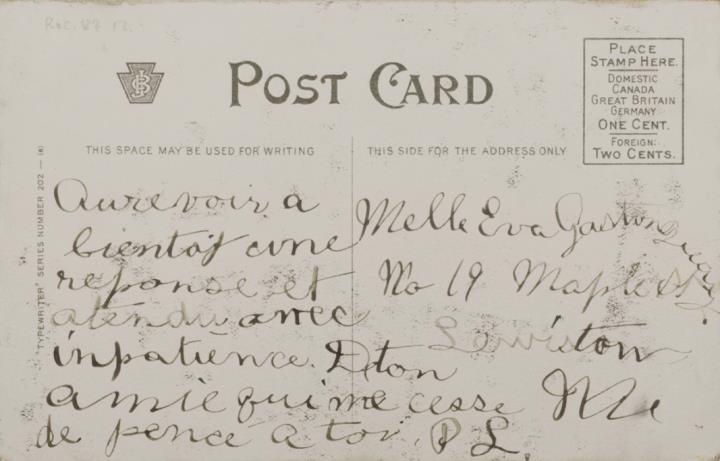 Rec. 87 12.
POST CARD
PLACE
STAMP HERE.
DOMESTIC
CANADA
GREAT BRITAIN
GERMANY
ONE CENT.
FOREIGN:
TWO CENTS.
THIS SPACE MAY BE USED FOR WRITING
THIS SIDE FOR THE ADDRESS ONLY
"TYPEWRITER" SERIES NUMBER 202 — (8)
Aurevoir a
bientot une
reponse et
atendu avvec
inpatience. D ton
amie qui me cesse
de pencé a toi. P L.
Melle Eva Gaston
No 19 Maple St
Lewiston
Me